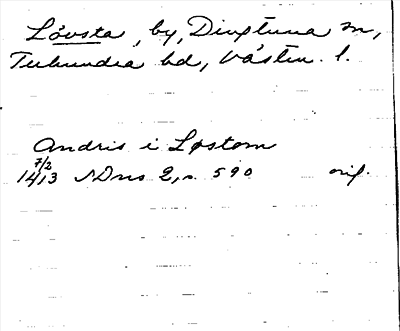 Lövsta, by, Dingtuna sn,
Tuhundra hd, Västm. l.
Andris i Løstom
7/2
1413 SDns 2, n. 590 orig.